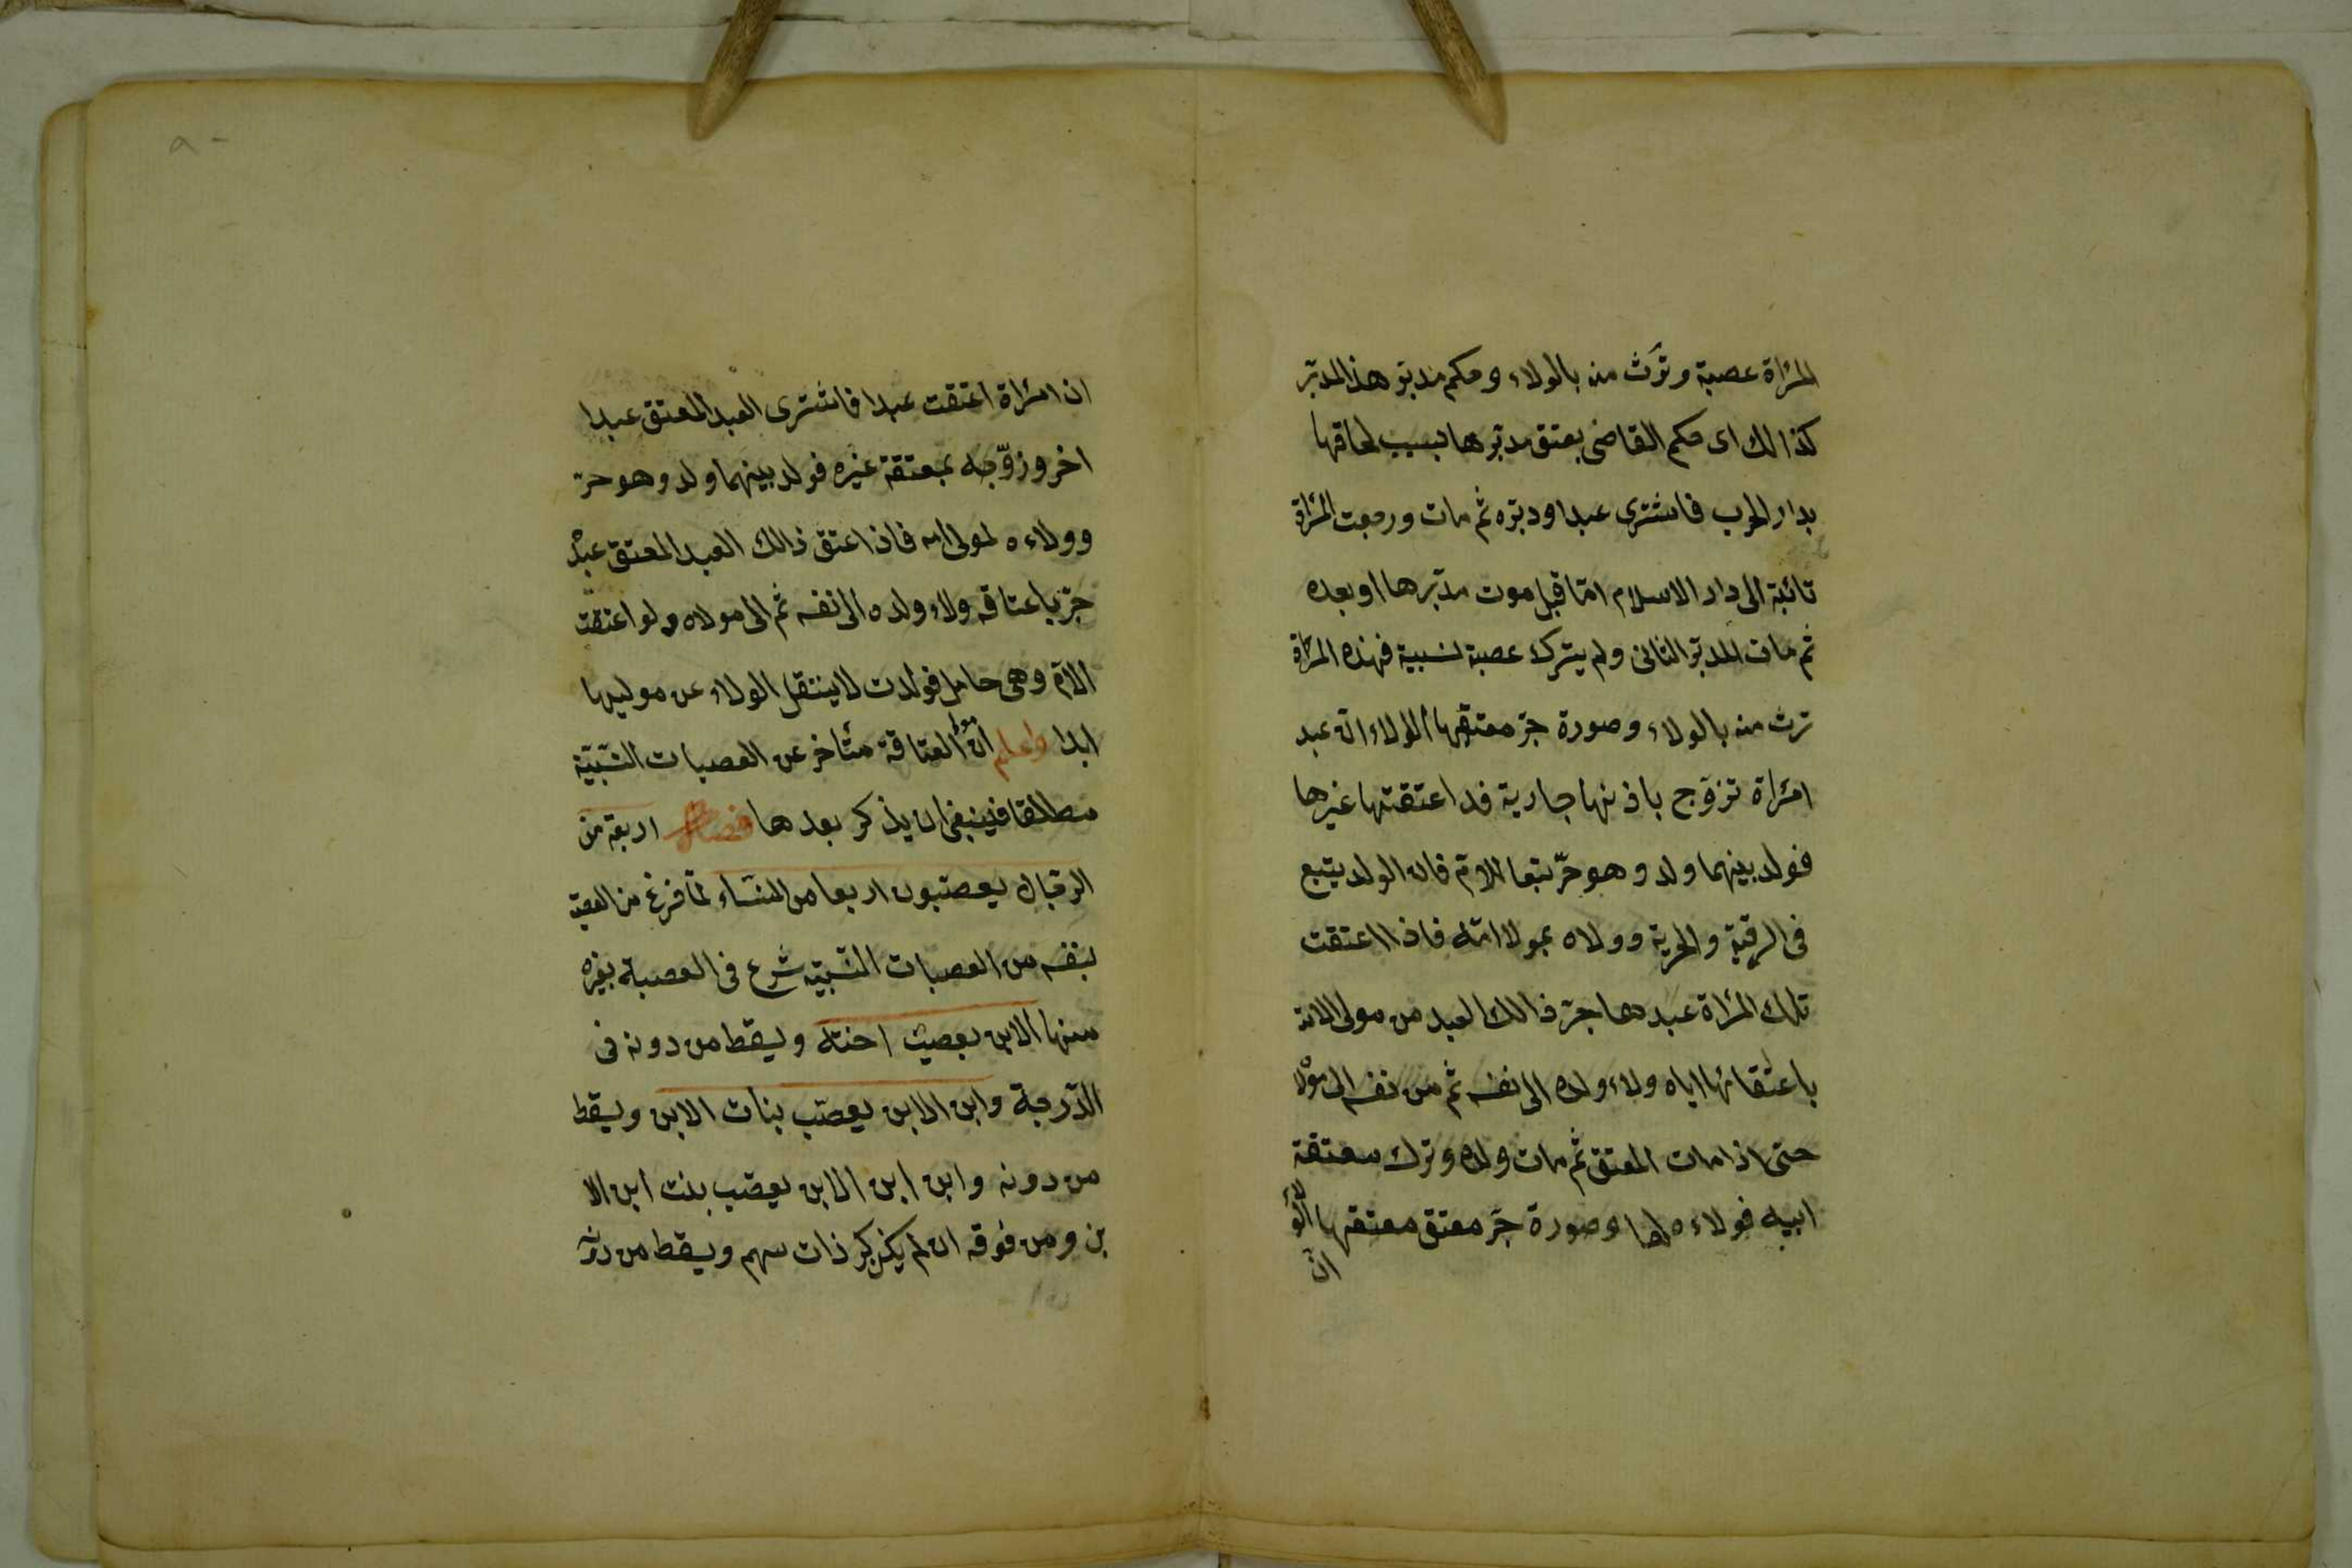 المرأة عصبة وترث منه بالولاء وحكم مدبر هذا المدبّر
كذالك اى حكم القاضى بعتق مدبرها بسبب لحاقها
بدار الحرب فاشترى عبدا ودبّره ثم مات ورجعت المرأة
تائبة الى دار الاسلام امّا قبل موت مدبّرها او بعده
ثم مات المدبّر الثانى ولم يترك عصبة نسبية فهذه المرأة
ترث منه بالولاء وصورة جرّ معتقها الولاء انّ عبد
امرأة تزوّج باذنها جارية قد اعتقتها غيرها
فولد بينهما ولد وهو حرّ تبعا للامّ فان الولد يتبع
فى الرقية والحرية وولاه بمولا امّه فاذا اعتقت
تلك المرأة عبدها جرّ ذالك العبد من مولى الامّ
باعتقاتها اياه ولاء ولده الى نفسه ثم من نفسه الى مولا
حتى اذا مات المعتق ثم مات ولده وترك معتقة
ابيه فولاءه لها وصورة جرّ معتق معتقها الولاء
انّ
ان امرأة اعتقت عبدا فاشترى العبد المعتق عبدا
اخر وزوّجه بمعتقة غيره فولد بينهما ولد وهو حرّ
وولاءه لمولى امه فاذا اعتق ذالك العبد المعتق عبده
جرّ باعتاقه ولاء ولده الى نفسه ثم الى مولاه ولو اعتقت
الامّ وهى حامل فولدت لا ينتقل الولاء عن موليها
ابدا واعلم انّ مولى العتاقة متأخر عن العصبات النسبيّة
مطلقا فينبغى ان يذكر بعدها فصل اربعة من
الرجال يعصبون اربعا من النساء لمّا فرغ من العصبة
بنفسه من العصبات النسبيّة شرع فى العصبة بغيره
منها الابن يعصب اخته ويسقط من دونه فى
الدّرجة وابن الابن يعصّب بنات الابن ويسقط
من دونه وابن ابن الابن يعصّب بنت ابن الا
بن ومن فوقه ان لم يكن ذات سهم ويسقط من دونه